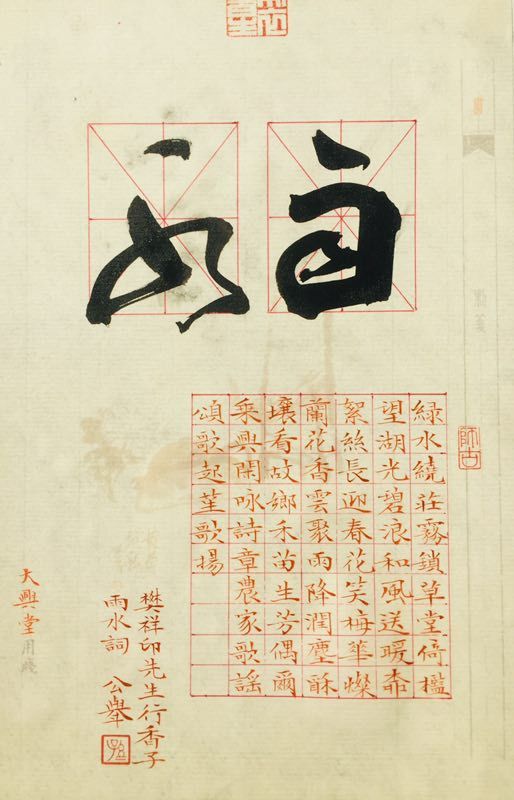 自
緑水繞莊霧鎖草堂倚檻
望湖光碧浪和風送暖
絮絲長迎春花笑梅華燦
蘭花香雲聚雨降潤塵酥
壤看故鄉禾苗生芳偶爾
乘興閑咏詩章農家歌謡
頌歌起歌揚
師古
樊祥印先生行香子
雨水詞 公舉
大興堂用牋